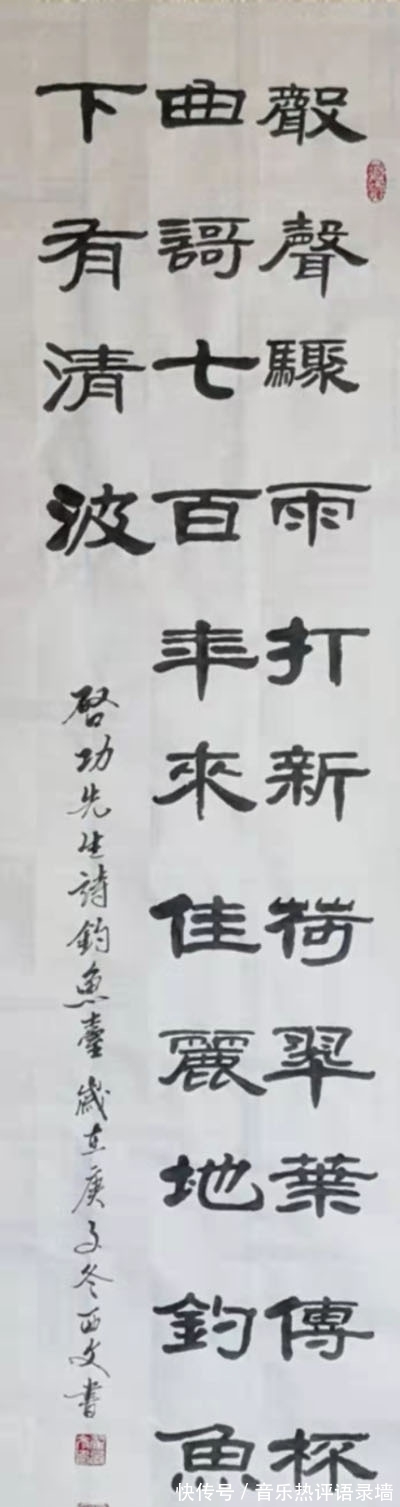 數聲驟雨打新荷翠葉傳杯
曲謌七百年來佳麗地釣魚
下有清波
啓功先生詩釣魚臺 歲在庚子冬西文書
快传号 / 音乐热评语录墙